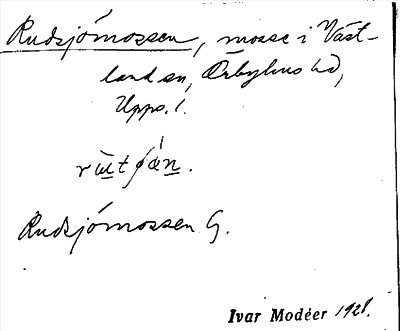 Rudsjömossen, mosse i Väst-
land sn, Örbyhus hd,
Upps. l.
Rudsjömossen G.
Ivar Modéer 1928.